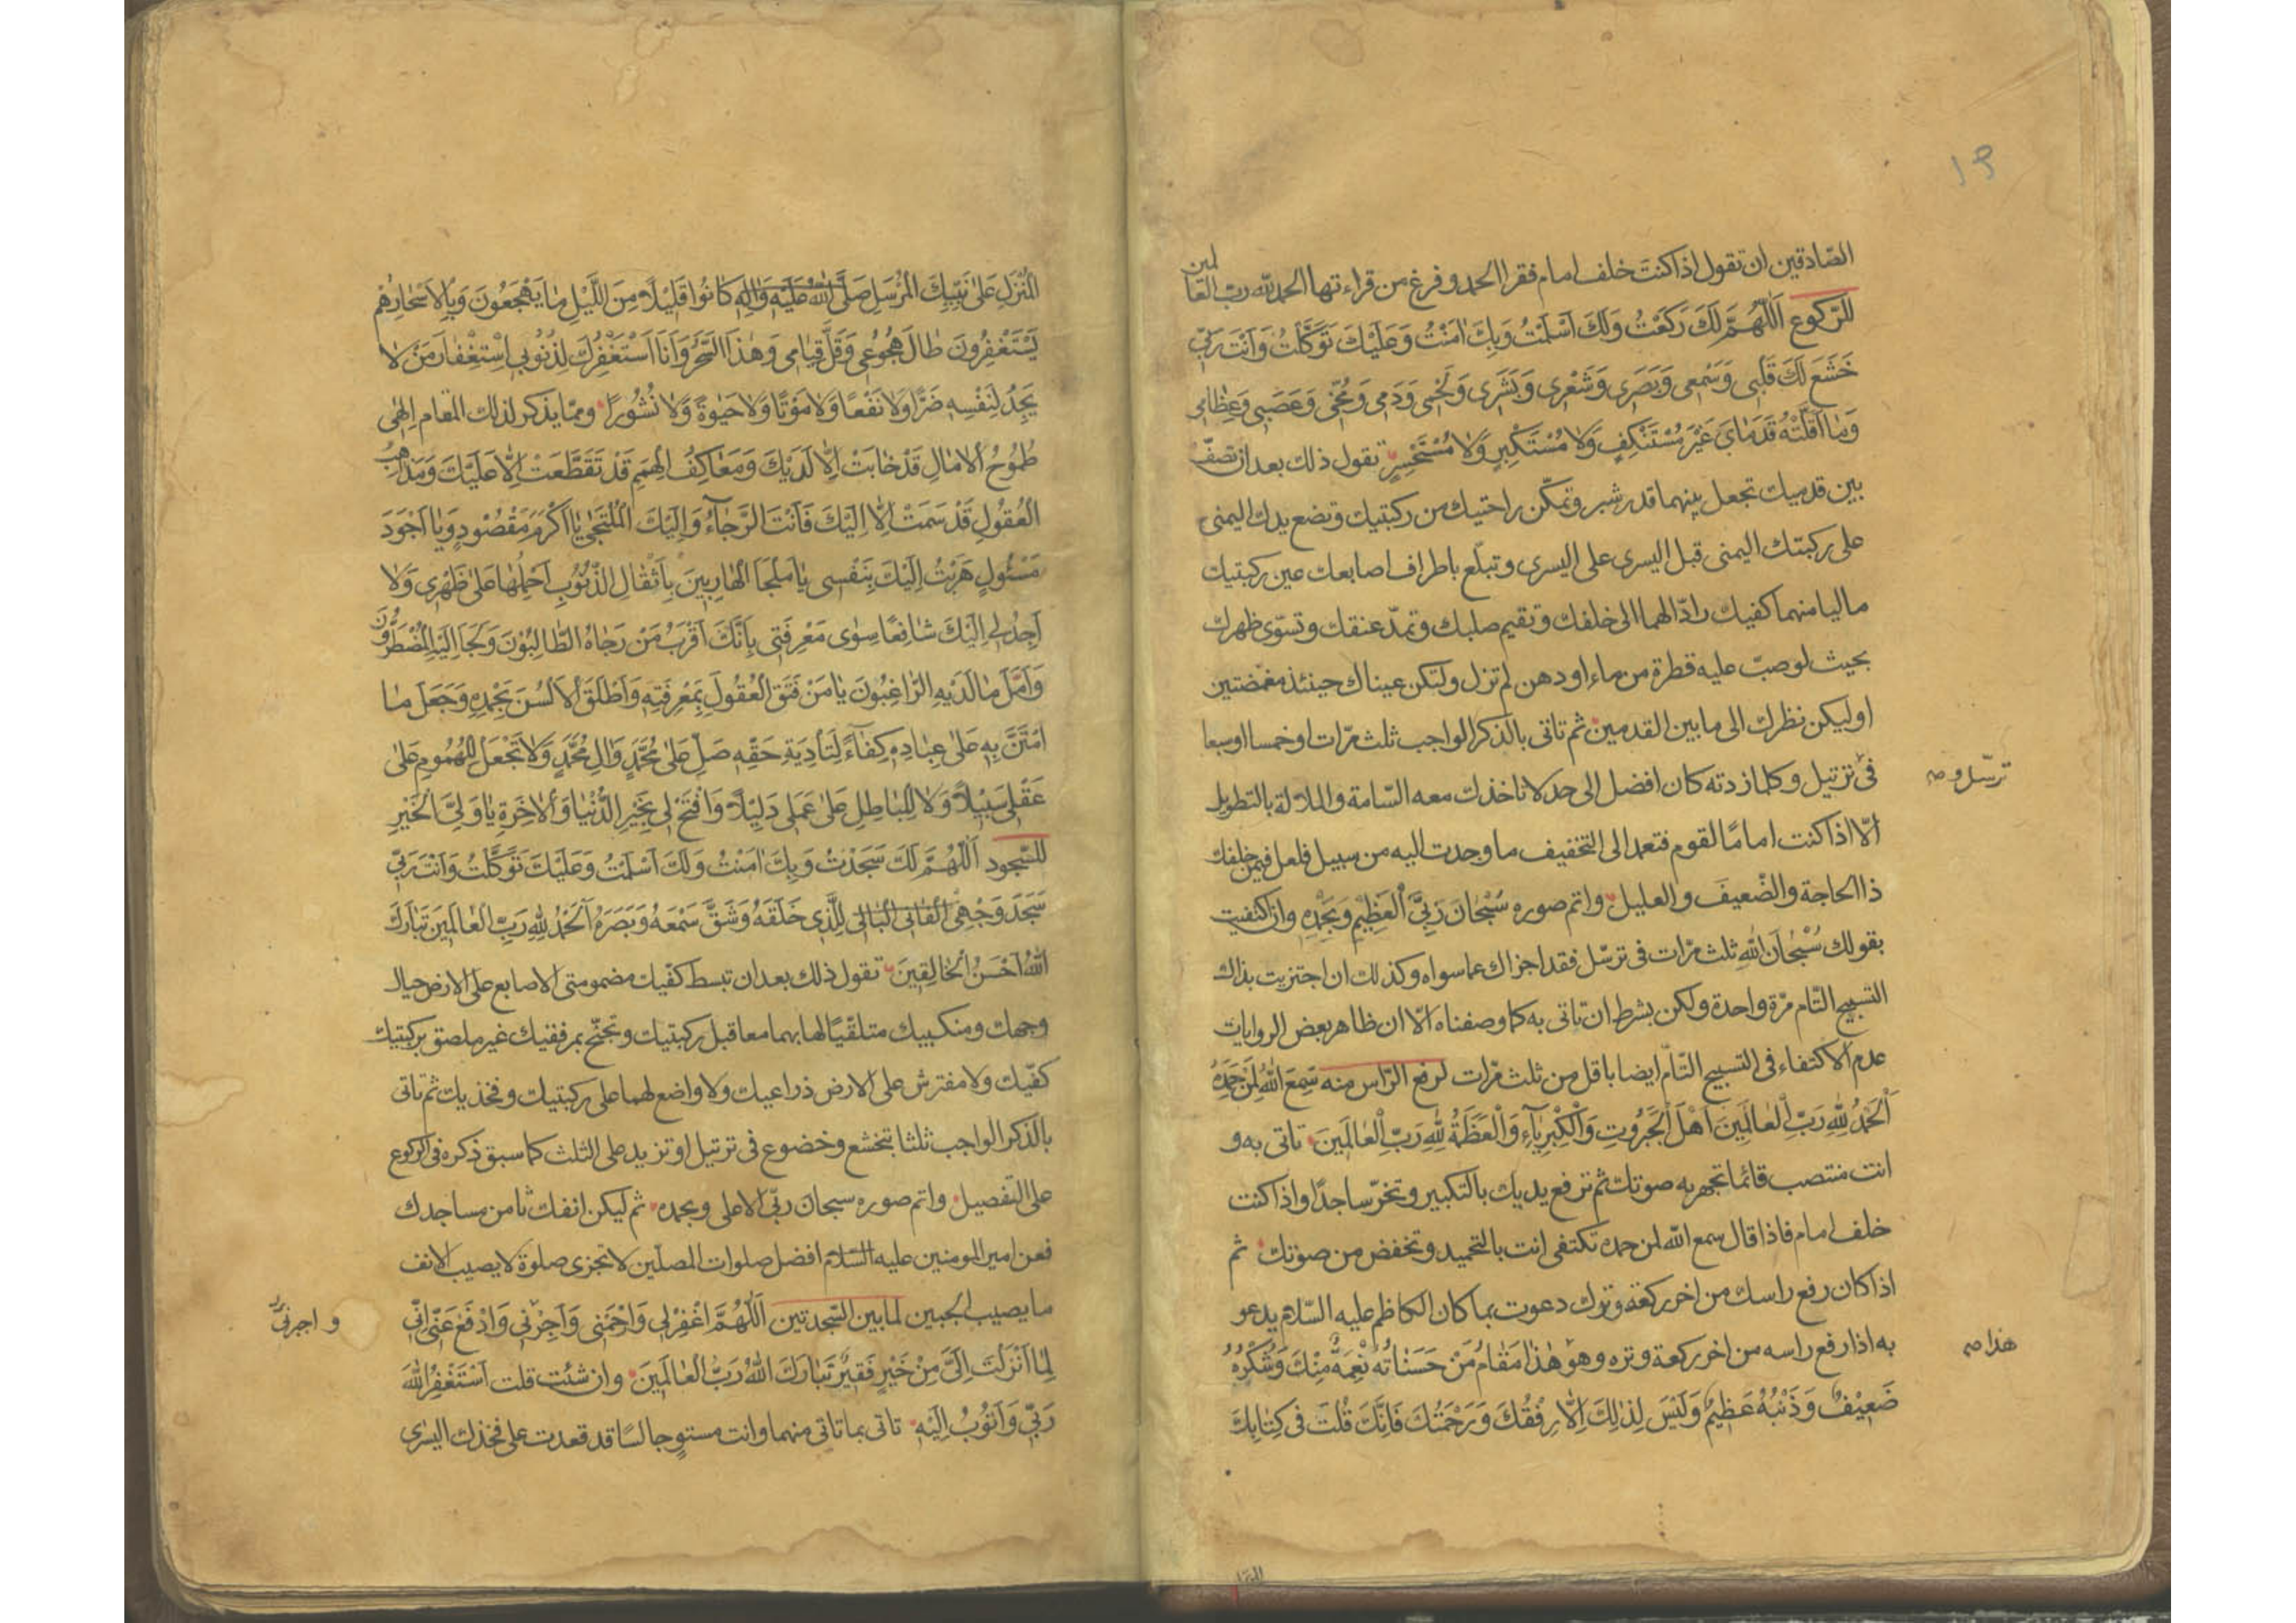 ١٩
الصّادقين ان تقول اذا كنت خلف امام فقرا الحمد و فرغ من قراءتها الحمد لله ربّ العالمين
للرّكوع اَللّٰهُمَّ لَكَ رَكَعْتُ وَلَكَ اَسْلَمْتُ وَبِكَ اٰمَنْتُ وَعَلَيْكَ تَوَكَّلْتُ وَاَنْتَ رَبّي
خَشَعَ لَكَ قَلْبي وَسَمْعي وَبَصَري وَشَعْري وَبَشَري وَلَحْمي وَدَمي وَمُخّي وَعَصَبي وَعِظٰامي
وَمٰا اَقَلَّتْهُ قَدَمٰايَ غَيْرَ مُسْتَنْكِفٍ وَلاٰ مُسْتَكْبِرٍ وَلاٰ مُسْتَحْسِرٍ تقول ذلك بعد ان تصفّ
بين قدميك تجعل بينهما قدر شبر و تمكّن راحتيك من ركبتيك و تضع يدك اليمنى
على ركبتك اليمنى قبل اليسرى على اليسرى و تبلّع باطراف اصابعك عين ركبتيك
ماليا منهما كفيك رادّا لهما الى خلفك و تقيم صلبك و تمدّ عنقك و تسوّى ظهرك
بحيث لو صبّ عليه قطرة من ماء او دهن لم تزل ولتكن عيناك حينئذ مغمضتين
او ليكن نظرك الى ما بين القدمين ثم تاتى بالذكر الواجب ثلث مرّات او خمسا او سبعا
فى ترتيل و كلما زدته كان افضل الى حد لا تاخذك معه السّامة و الملالة بالتطويل
ترسّل و صه
الّا اذا كنت امامًا لقوم فتعمد الى التخفيف ما وجدت اليه من سبيل فلعل فيمن خلفك
ذا الحاجة و الضّعيف و العليل و اتم صوره سُبْحٰانَ رَبِّيَ الْعَظيمِ وَبِحَمْدِهِ و ان اكتفيت
بقولك سُبْحٰانَ اللهِ ثلث مرّات فى ترسّل فقد اجزاك عما سواه و كذلك ان اجتزيت بذاك
التسبيح التّام مرّة واحدة و لكن بشرط ان تاتى به كما وصفناه الّا ان ظاهر بعض الروايات
عدم الاكتفاء فى التسبيح التّام ايضا باقل من ثلث مرّات لرفع الرّاس منه سَمِعَ اللهُ لِمَنْ حَمِدَهُ
اَلْحَمْدُ لِلّٰهِ رَبِّ الْعٰالَمينَ اَهْلِ الْجَبَرُوتِ وَالْكِبْرِيٰاءِ وَالْعَظَمَةُ لِلّٰهِ رَبِّ الْعٰالَمينَ تاتى به و
انت منتصب قائما تجهر به صوتك ثم ترفع يديك بالتكبير و تخرّ ساجدًا و اذا كنت
خلف امام فاذا قال سمع الله لمن حمده تكتفى انت بالتحميد و تخفض من صوتك ثم
اذا كان رفع راسك من اخر ركعة وترك دعوت بما كان الكاظم عليه السّلام يدعو
به اذا رفع راسه من اخر ركعة وتره و هو هٰذٰا مَقٰامُ مَنْ حَسَنٰاتُهُ نِعْمَةٌ مِنْكَ وَشُكْرُهُ
هذا صه
ضَعيفٌ وَذَنْبُهُ عَظيمٌ وَلَيْسَ لِذٰلِكَ اِلّٰا رِفْقُكَ وَرَحْمَتُكَ فَاِنَّكَ قُلْتَ في كِتٰابِكَ
الْمُنْزَلِ عَلىٰ نَبِيِّكَ الْمُرْسَلِ صَلَّى اللهُ عَلَيْهِ وَاٰلِهِ كٰانُوا قَليلًا مِنَ اللَّيْلِ مٰا يَهْجَعُونَ وَبِالْاَسْحٰارِ هُمْ
يَسْتَغْفِرُونَ طٰالَ هُجُوعي وَقَلَّ قِيٰامي وَهٰذَا السَّحَرُ وَاَنَا اَسْتَغْفِرُكَ لِذُنُوبي اِسْتِغْفٰارَ مَنْ لاٰ
يَجِدُ لِنَفْسِهِ ضَرًّا وَلاٰ نَفْعًا وَلاٰ مَوْتًا وَلاٰ حَيٰوةً وَلاٰ نُشُورًا و ممّا يذكر لذلك المقام اِلٰهي
طُمُوحُ الْاٰمٰالِ قَدْ خٰابَتْ اِلّٰا لَدَيْكَ وَمَعٰاكِفُ الْهِمَمِ قَدْ تَقَطَّعَتْ اِلّٰا عَلَيْكَ وَمَذٰاهِبُ
الْعُقُولِ قَدْ سَمَتْ اِلّٰا اِلَيْكَ فَاَنْتَ الرَّجٰاءُ وَاِلَيْكَ الْمُلْتَجٰى يٰا اَكْرَمَ مَقْصُودٍ وَيٰا اَجْوَدَ
مَسْئُولٍ هَرَبْتُ اِلَيْكَ بِنَفْسي يٰا مَلْجَأَ الْهٰارِبينَ بِاَثْقٰالِ الذُّنُوبِ اَحْمِلُهٰا عَلىٰ ظَهْري وَلاٰ
اَجِدُ لي اِلَيْكَ شٰافِعًا سِوٰى مَعْرِفَتي بِاَنَّكَ اَقْرَبُ مَنْ رَجٰاهُ الطّٰالِبُونَ وَلَجَاَ اِلَيْهِ الْمُضْطَرُّونَ
وَاَمَّلَ مٰا لَدَيْهِ الرّٰاغِبُونَ يٰا مَنْ فَتَقَ الْعُقُولَ بِمَعْرِفَتِهِ وَاَطْلَقَ الْاَلْسُنَ بِحَمْدِهِ وَجَعَلَ مٰا
امْتَنَّ بِهِ عَلىٰ عِبٰادِهِ كِفٰاءً لِتَأْدِيَةِ حَقِّهِ صَلِّ عَلىٰ مُحَمَّدٍ وَاٰلِ مُحَمَّدٍ وَلاٰ تَجْعَلْ لِلْهُمُومِ عَلىٰ
عَقْلي سَبيلًا وَلاٰ لِلْبٰاطِلِ عَلىٰ عَمَلي دَليلًا وَافْتَحْ لي بِخَيْرِ الدُّنْيٰا وَالْاٰخِرَةِ يٰا وَلِيَّ الْخَيْرِ
للسّجود اَللّٰهُمَّ لَكَ سَجَدْتُ وَبِكَ اٰمَنْتُ وَلَكَ اَسْلَمْتُ وَعَلَيْكَ تَوَكَّلْتُ وَاَنْتَ رَبّي
سَجَدَ وَجْهِيَ الْفٰانِي الْبٰالي لِلَّذي خَلَقَهُ وَشَقَّ سَمْعَهُ وَبَصَرَهُ اَلْحَمْدُ لِلّٰهِ رَبِّ الْعٰالَمينَ تَبٰارَكَ
اللهُ اَحْسَنُ الْخٰالِقينَ تقول ذلك بعد ان تبسط كفّيك مضمومتى الاصابع على الارض حيال
وجهك و منكبيك متلقّيًا لها بهما معا قبل ركبتيك و تجنّح بمرفقيك غير ملصق بركبتيك
كفّيك و لا مفترش على الارض ذراعيك و لا واضع لهما على ركبتيك و فخذيك ثم تاتى
بالذكر الواجب ثلثا بتخشع و خضوع فى ترتيل او تزيد على الثلث كما سبق ذكره فى الركوع
على التفصيل و اتم صوره سبحان ربّى الاعلى و بحمده ثم ليكن انفك ثامن مساجدك
فعن امير المومنين عليه السّلام افضل صلوات المصلّين لا تجزى صلوة لا يصيب الانف
ما يصيب الجبين لما بين السّجدتين اَللّٰهُمَّ اغْفِرْ لي وَارْحَمْني وَاَجِرْني وَادْفَعْ عَنّي اِنّي
و اجبرنى
لِمٰا اَنْزَلْتَ اِلَيَّ مِنْ خَيْرٍ فَقيرٌ تَبٰارَكَ اللهُ رَبُّ الْعٰالَمينَ و ان شئت قلت اَسْتَغْفِرُ اللهَ
رَبّي وَاَتُوبُ اِلَيْهِ تاتى بما تاتى منهما و انت مستو جالسًا قد قعدت على فخذك اليسرى